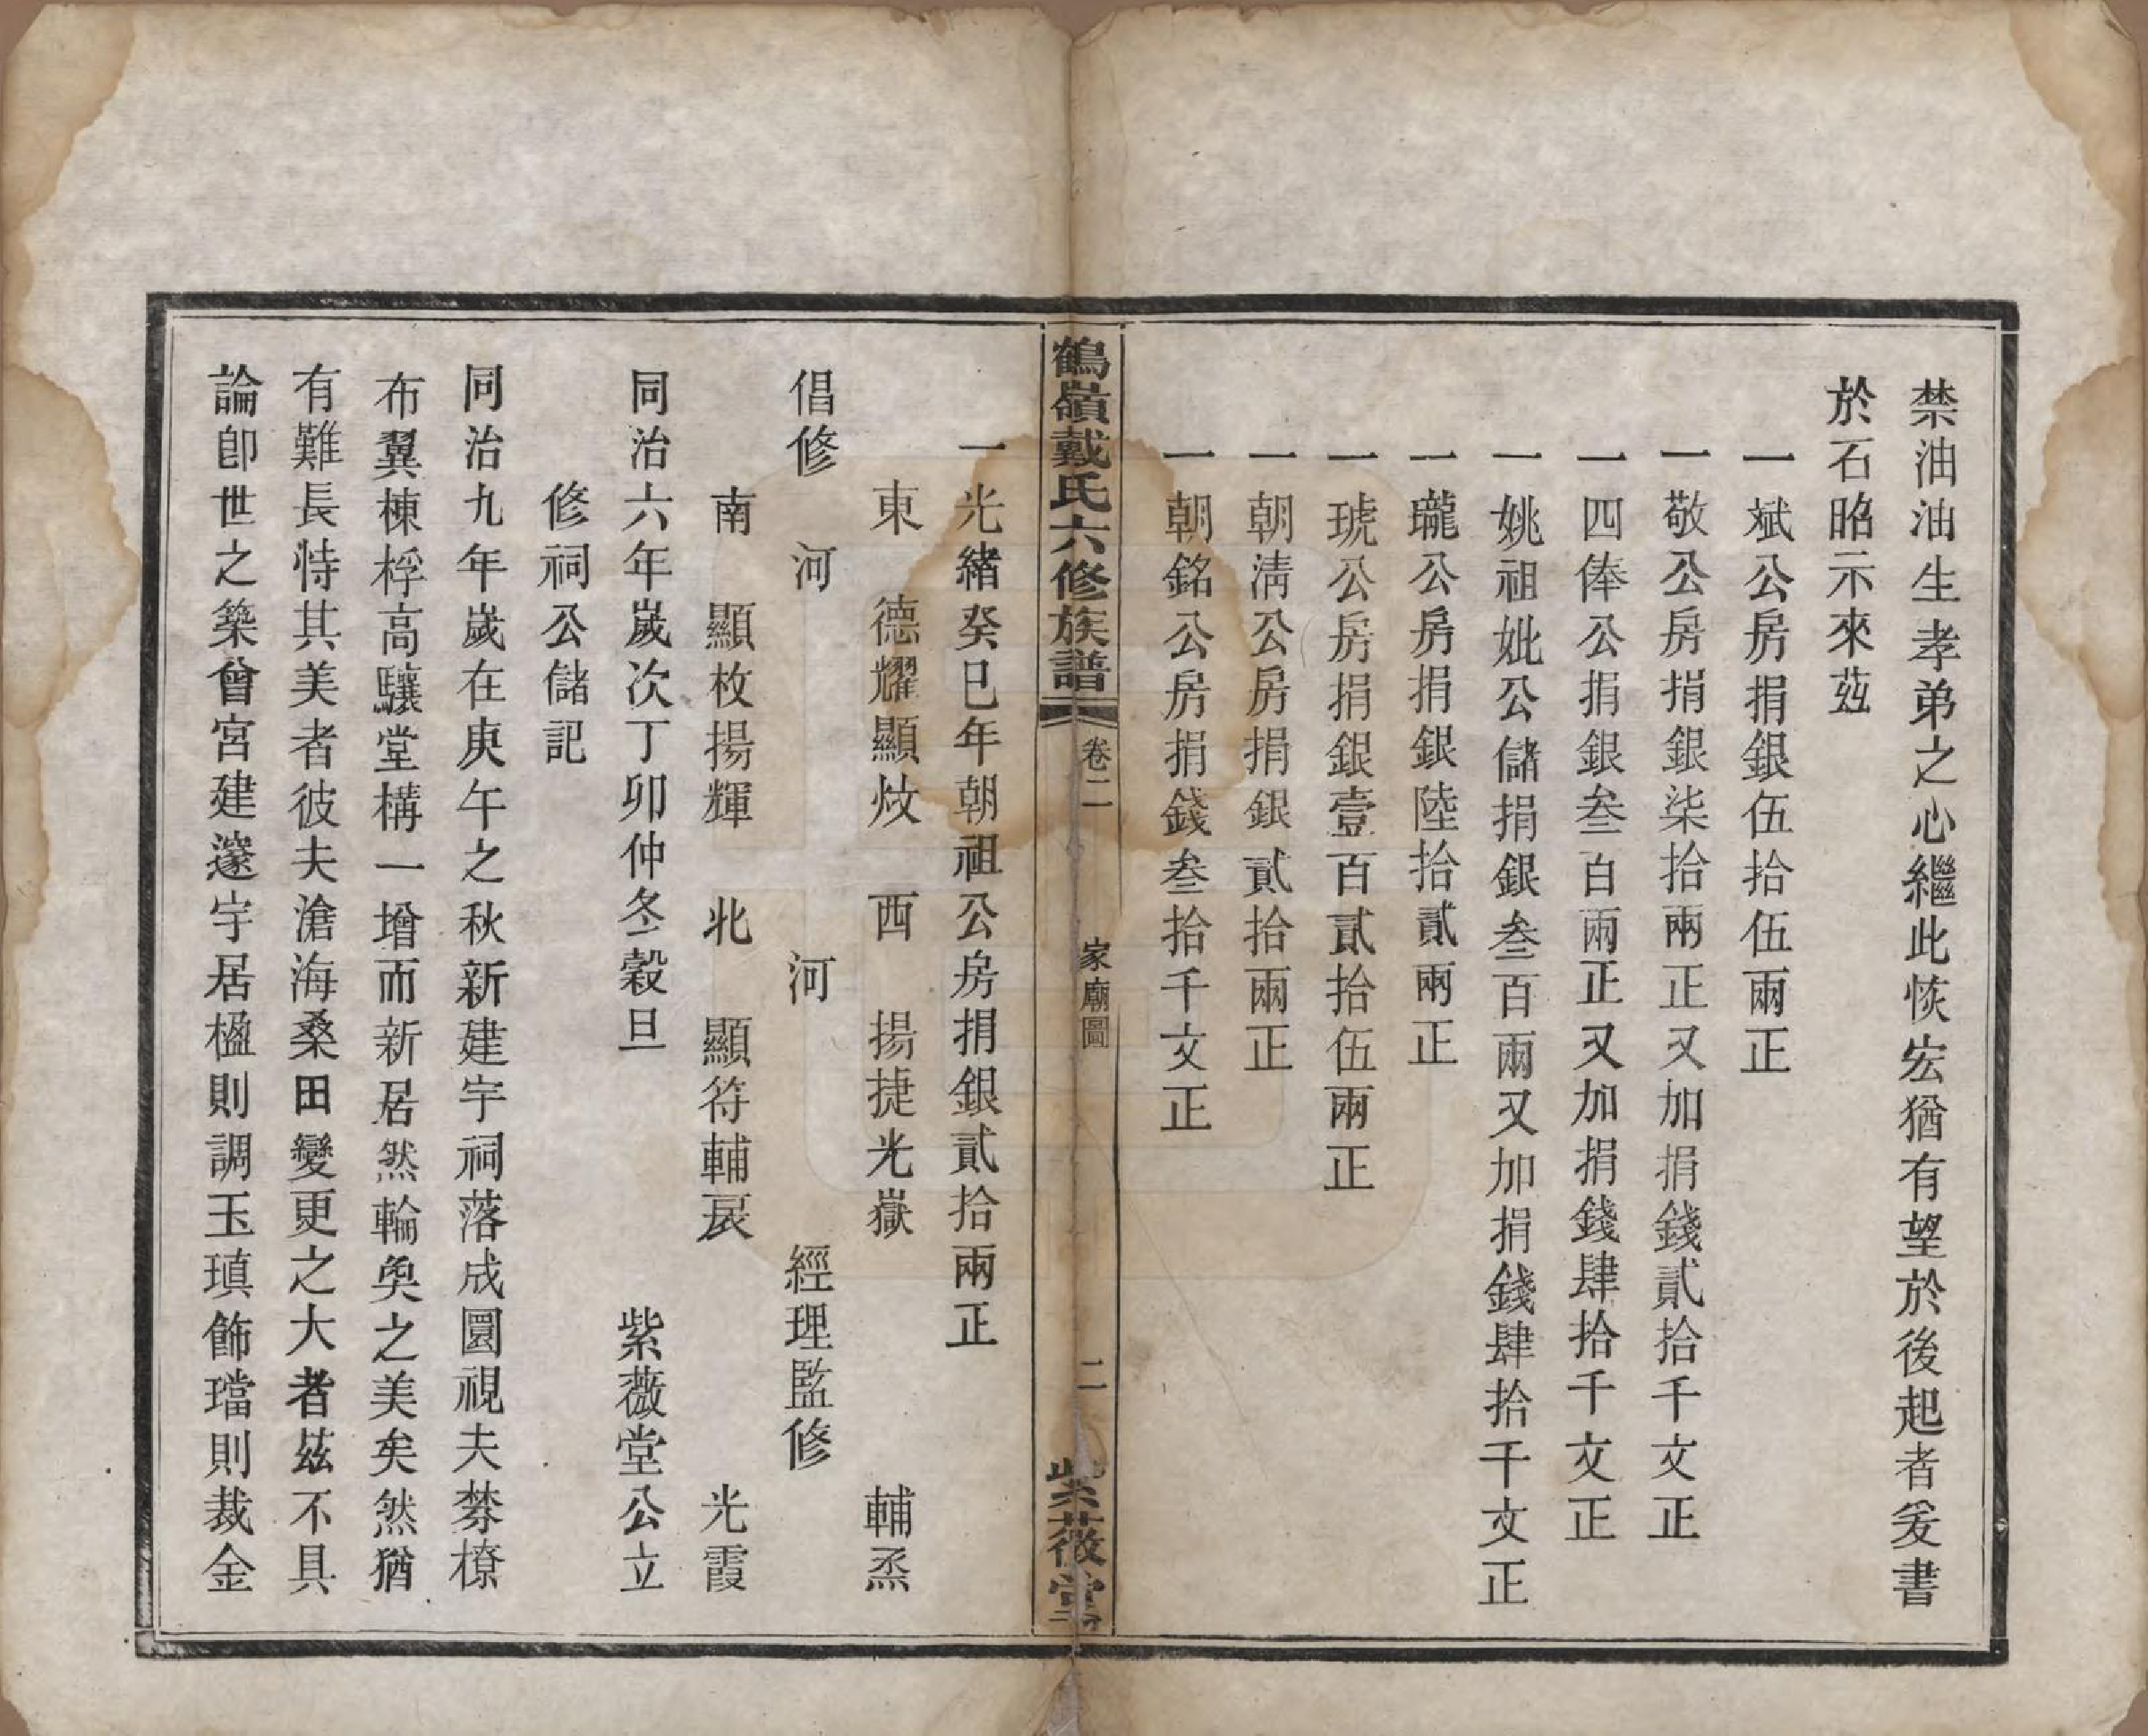 禁油油生孝弟之心繼此恢宏猶有望於後起者爰書
於石昭示來茲
一斌公房捐銀伍拾伍兩正
一敬公房捐銀柒拾兩正又加捐錢貳拾千文正
一四俸公捐銀叁百兩正又加捐錢肆拾千文正
一姚祖妣公儲捐銀叁百兩又加捐錢肆拾千文正
一瓏公房捐銀陸拾貳兩正
一琥公房捐銀壹百貳拾伍兩正
一朝淸公房捐銀貳拾兩正
一朝銘公房捐錢叁拾千文正
鶴嶺戴氏六修族譜 卷二 家廟圖 二 紫薇堂
一光緒癸巳年朝祖公房捐銀貳拾兩正
東 德耀顯炆 西 揚捷光嶽 輔烝
倡修 河 河 經理監修
南 顯枚揚輝 北 顯符輔扆 光霞
同治六年歲次丁卯仲冬穀旦 紫薇堂公立
修祠公儲記
同治九年歲在庚午之秋新建宇祠落成圜視夫棼橑
布翼棟桴高驤堂構一增而新居然輪奐之美矣然猶
有難長恃其美者彼夫滄海桑田變更之大者茲不具
論卽世之築曾宮建邃宇居楹則調玉瑱飾璫則裁金